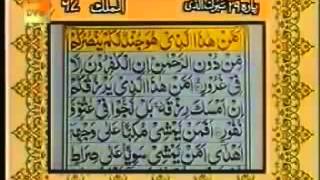 پاره ۲۹ تبرک الذی الملک ٦٧
اَمَّنْ هٰذَا الَّذِیْ هُوَ جُنْدٌ لَّكُمْ یَنْصُرُكُمْ
مِّنْ دُوْنِ الرَّحْمٰنِ اِنِ الْكٰفِرُوْنَ اِلَّا
فِیْ غُرُوْرٍ اَمَّنْ هٰذَا الَّذِیْ یَرْزُ
قُكُمْ اِنْ اَمْسَكَ رِزْقَهٗ بَلْ لَّجُّوْا فِیْ عُتُوٍّ
وَّنُفُوْرٍ اَفَمَنْ یَّمْشِیْ مُكِبًّا عَلٰی وَجْهِهٖ
اَهْدٰی اَمَّنْ یَّمْشِیْ سَوِیًّا عَلٰی صِرَاطٍ